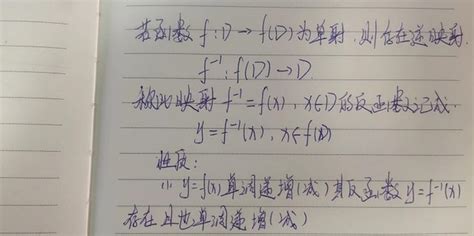 若函数 f:D → f(D)为单射,则存在逆映射
f⁻¹:f(D)→D
称此映射 f⁻¹=f(x),x∈D的反函数,记成
y=f⁻¹(x),x∈f(D)
性质:
(1) y=f(x)单调递增(减)其反函数 y=f⁻¹(x)
存在且也单调递增(减)